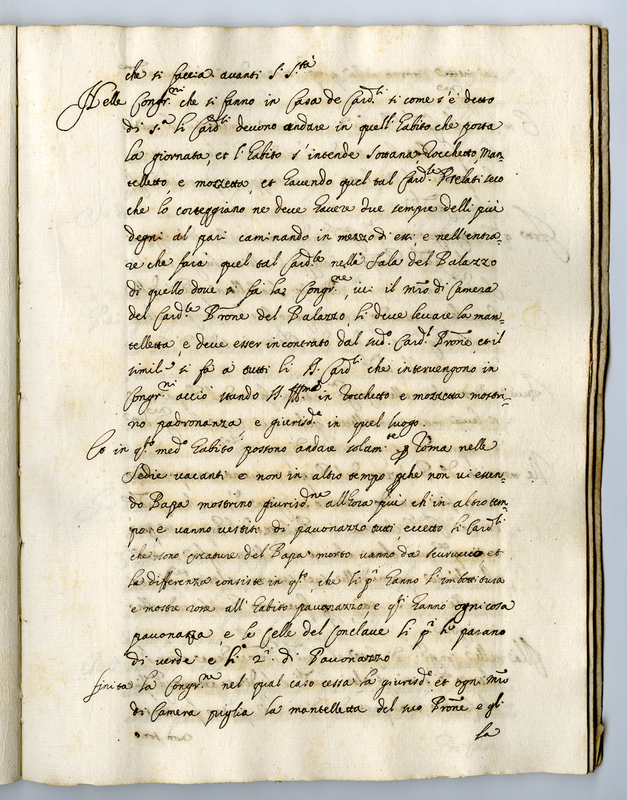 che si faccia avanti S. S.tà
Nelle Congr.ni che si fanno in Casa de Card.li si come s'è detto
di s.a li Card.li devono andare in quell'habito che porta
la giornata, et l'habito s'intende Sottana, Rocchetto, Man-
telletto, e mozzetta, et havendo quel tal Card.le Prelati seco
che lo corteggiano ne deve havere due sempre delli più
degni al pari caminando in mezzo di essi, e nell'entra-
re che farà quel tal Card.le nella Sala del Palazzo
di quello dove si fà la Congr.ne, ivi il mro di Camera
del Card.le Prone del Palazzo, li deve levare la man-
telletta, e deve esser incontrato dal sud.o Card.l Prone, et il
simile si fà à tutti li SS. Card.li che intervengono in
Congr.ni acciò stando SS. Ill.me in Rocchetto e mozzetta mostri-
no padronanza e giurisd.e in quel luogo.
Et in q.to med.o habito possono andare solam.te p Roma nelle
Sedie vacanti e non in altro tempo, pche non vi essen-
do Papa mostrino giurisd.ne all'hora più ch'in altro tem-
po, e vanno vestiti di pavonazzo tutti, eccetto li Card.li
che sono creature del Papa morto vanno da scuruccio, et
la differenza consiste in q.to, che li p.i hanno l'imbottitura
e mostre rosse all'habito pavonazzo, e q.ti hanno ogni cosa
pavonazza, e le Celle del Conclave li p.i le parano
di verde e li 2.i di Pavonazzo
finita la Congr.ne nel qual caso cessa la giurisd.e et ogni mro
di Camera piglia la mantelletta del suo Prone e gli
la